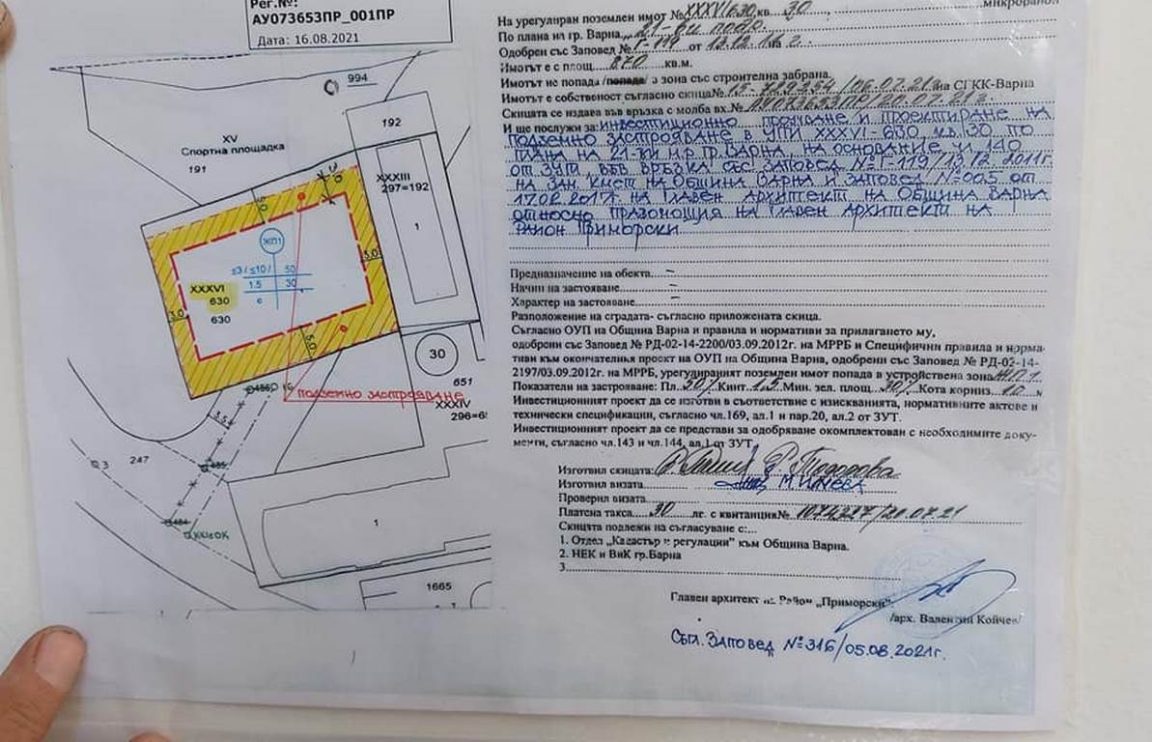 Рег.№:
АУ073653ПР_001ПР
Дата: 16.08.2021
994
192
XV
Спортна площадка
191
XXXIII
297=192
1
3.0
5.0
ЖП1
≤3/≤10/ 50
1.5 30
e
XXXVI
630
630
3.0
3.0
5.0
30
651
подземно застрояване
XXXIV
3.5
247
3
1
1665
1
На урегулиран поземлен имот № XXXVI 630, кв. 30, микрорайон
По плана на гр. Варна, 21-ви подр.
Одобрен със Заповед № Г-119 от 13.12.11 г.
Имотът е с площ 870 кв.м.
Имотът не попада /попада/ в зона със строителна забрана.
Имотът е собственост съгласно скица№ 15-729254/06.07.21г на СГКК-Варна
Скицата се издава във връзка с молба вх.№ АУ073653ПР/20.07.21г.
И ще послужи за: инвестиционно проучване и проектиране на
подземно застрояване в УПИ XXXVI-630, кв.30 по
плана на 21-ви м.р. гр. Варна, на основание чл. 140
от ЗУТ, във връзка със Заповед № Г-119/13.12.2011г.
на Зам. Кмет на Община Варна и Заповед №005 от
17.02.2017г. на Главен архитект на Община Варна
относно правомощия на Главен архитект на
район Приморски
Предназначение на обекта. –
Начин на застояване –
Характер на застояване –
Разположение на сградата- съгласно приложената скица.
Съгласно ОУП на Община Варна и правила и нормативи за прилагането му,
одобрени със Заповед № РД-02-14-2200/03.09.2012г. на МРРБ и Специфични правила и норма-
тиви към окончателния проект на ОУП на Община Варна, одобрени със Заповед № РД-02-14-
2197/03.09.2012г. на МРРБ, урегулираният поземлен имот попада в устройствена зона ЖП1
Показатели на застрояване: Пл. 50% Кинт. 1,5 Мин. зел. площ. 30% Кота корниз. 10 м
Инвестиционният проект да се изготви в съответствие с изискванията, нормативните актове и
технически спецификации, съгласно чл.169, ал.1 и пар.20, ал.2 от ЗУТ.
Инвестиционният проект да се представи за одобряване окомплектован с необходимите доку-
менти, съгласно чл.143 и чл.144, ал.1 от ЗУТ.
Изготвил скицата: Р. Тодорова
Изготвил визата
Проверил визата
Платена такса 30 лг. с квитанция№ 1074327/20.07.21
Скицата подлежи на съгласуване с:
1. Отдел „Кадастър и регулации" към Община Варна.
2. НЕК и ВиК гр.Варна
3
Главен архитект на Район „Приморски"
/арх. Валентин Койчев/
Съгл. Заповед №316/05.08.2021г.